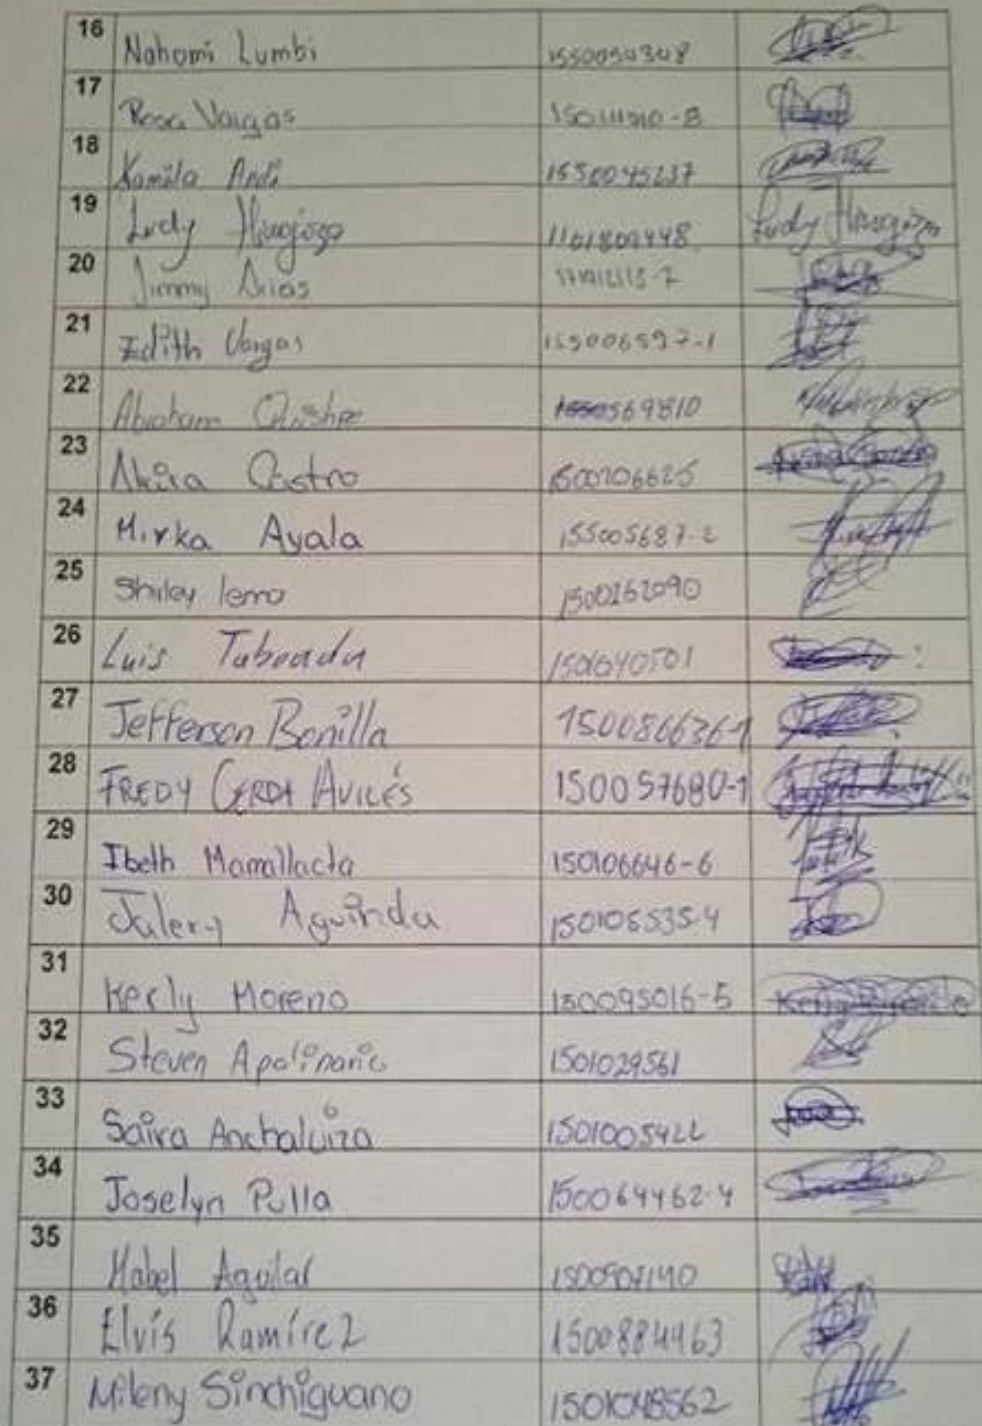 16 Nahomi Lumbi 1550054348
17 Rosa Vargas
18 Kamila Andi 1550045237
19 Ludy Hinojosa 1101809448 Ludy Hinojosa
20 Jimmy Arias
21 Edith Vargas 155006597-1
22 Abraham Quishpe 569810
23 Akira Castro 1500706625
24 Mirka Ayala 155005687-2
25 Shirley lema 1500262090
26 Luis Taboada 1501640501
27 Jefferson Bonilla 150086636-1
28 FREDY CERDA AVILÉS 150057680-1
29 Ibeth Mamallacta 150106646-6
30 Julery Aguinda 150105535-4
31 Kerly Moreno 150095016-5
32 Steven Apolinario 1501029561
33 Saira Anchaluiza 1501005422
34 Joselyn Pulla 150064462-4
35 Mabel Aguilar 1500907140
36 Elvis Ramírez 1500884463
37 Mileny Sinchiguano 1501048562